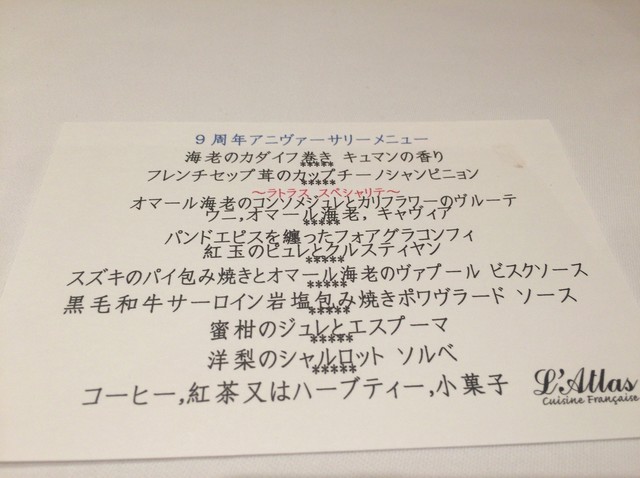 9周年アニヴァーサリーメニュー
海老のカダイフ巻き キュマンの香り
*****
フレンチセップ茸のカップチーノシャンピニョン
*****
～ラトラス スペシャリテ～
オマール海老のコンソメジュレとカリフラワーのヴルーテ
ウニ,オマール海老, キャヴィア
*****
パンドエピスを纏ったフォアグラコンフィ
紅玉のピュレとクルスティヤン
*****
スズキのパイ包み焼きとオマール海老のヴァプール ビスクソース
*****
黒毛和牛サーロイン岩塩包み焼きポワヴラード ソース
*****
蜜柑のジュレとエスプーマ
*****
洋梨のシャルロット ソルベ
*****
コーヒー,紅茶又はハーブティー,小菓子
L'Atlas
Cuisine Française